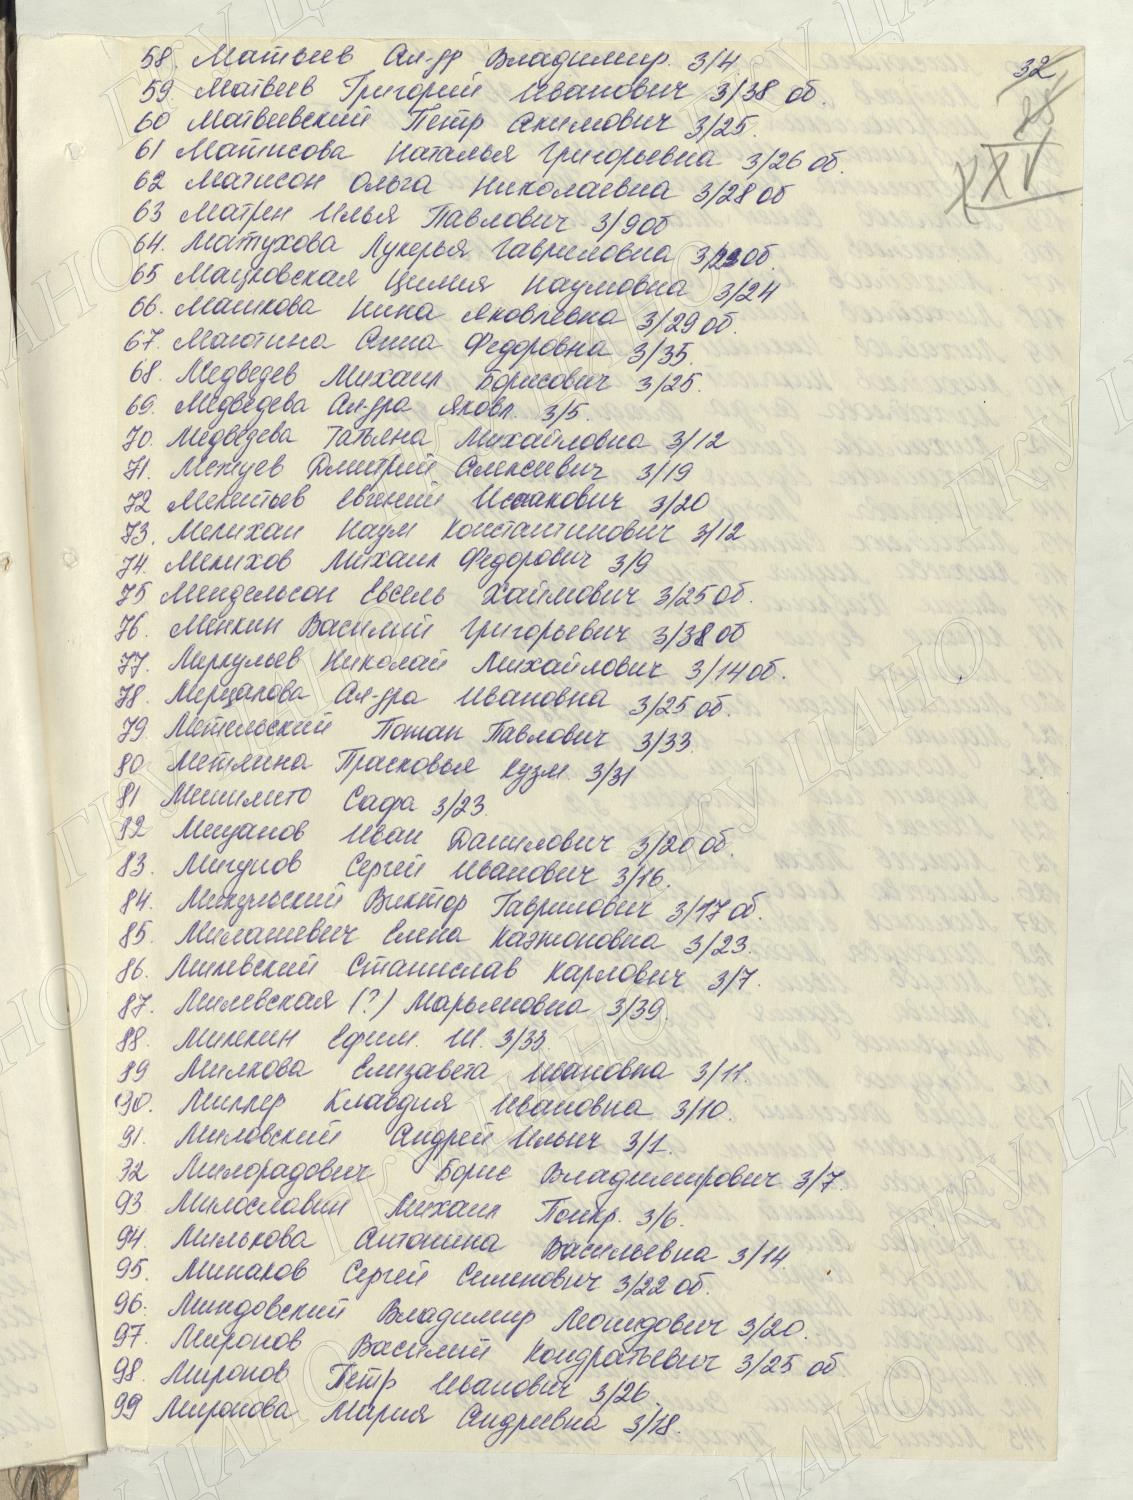 32
28
XXV
58. Матвеев Ал-др Владимир. 3/4
59. Матвеев Григорий Иванович 3/38 об.
60 Матвеевский Петр Акимович 3/25.
61 Матисова Наталья Григорьевна 3/26 об.
62 Матисон Ольга Николаевна 3/28 об
63 Матрен Илья Павлович 3/9 об
64. Матухова Лукерья Гавриловна 3/23 об.
65 Мацковская Цилия Наумовна 3/24
66. Машкова Нина Яковлевна 3/29 об.
67. Маютина Анна Федоровна 3/35.
68. Медведев Михаил Борисович 3/25.
69. Медведева Ал-дра Яковл. 3/5.
70. Медведева Татьяна Михайловна 3/12
71. Межуев Дмитрий Алексеевич 3/19
72 Мекитьев Евгений Исаакович 3/20
73. Мелихан Наум Константинович 3/12
74. Мелихов Михаил Федорович 3/9
75 Мендельсон Евсель Хаимович 3/25 об.
76. Менкин Василий Григорьевич 3/38 об
77. Меркульев Николай Михайлович 3/14 об.
78. Мерцалова Ал-дра Ивановна 3/25 об.
79. Метельский Потап Павлович 3/33.
80. Метлина Прасковья Кузм. 3/31
81 Мешилито Сафа 3/23.
82 Мещанов Иван Данилович 3/20 об.
83. Мигунов Сергей Иванович 3/16.
84. Микульский Виктор Гаврилович 3/17 об.
85. Милашевич Елена Казионовна 3/23.
86. Милевский Станислав Карлович 3/7.
87. Милевская (?) Марьяновна 3/39.
88. Милкин Ефим. Ш. 3/33.
89 Милкова Елизавета Ивановна 3/11.
90. Миллер Клавдия Ивановна 3/10.
91. Миловский Андрей Ильич 3/1.
92 Милорадович Борис Владимирович 3/7.
93 Милославин Михаил Поикр. 3/6.
94. Милькова Антонина Васильевна 3/14.
95. Минаков Сергей Семенович 3/22 об.
96. Миндовский Владимир Леонидович 3/20.
97. Миронов Василий Кондратьевич 3/25 об.
98. Миронов Петр Иванович 3/26.
99 Миронова Мария Андреевна 3/18.